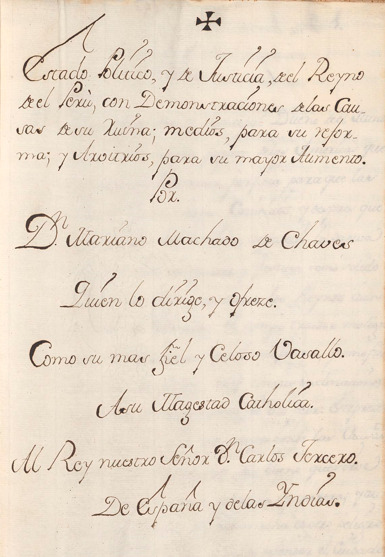 Estado Politico, y de Justicia, del Reyno
del Perù, con Demonstraciones de las Cau-
sas de su Ruina; medios, para su refor-
ma; y Arvitrios, para su mayor Aumento.
Por.
Dn. Mariano Machado de Chaves
Quien lo dirige, y ofreze.
Como su mas fiel y Celoso Vasallo.
A su Magestad Catholica.
Al Rey nuestro Señor Dn. Carlos Tercero.
De España y de las Yndias.